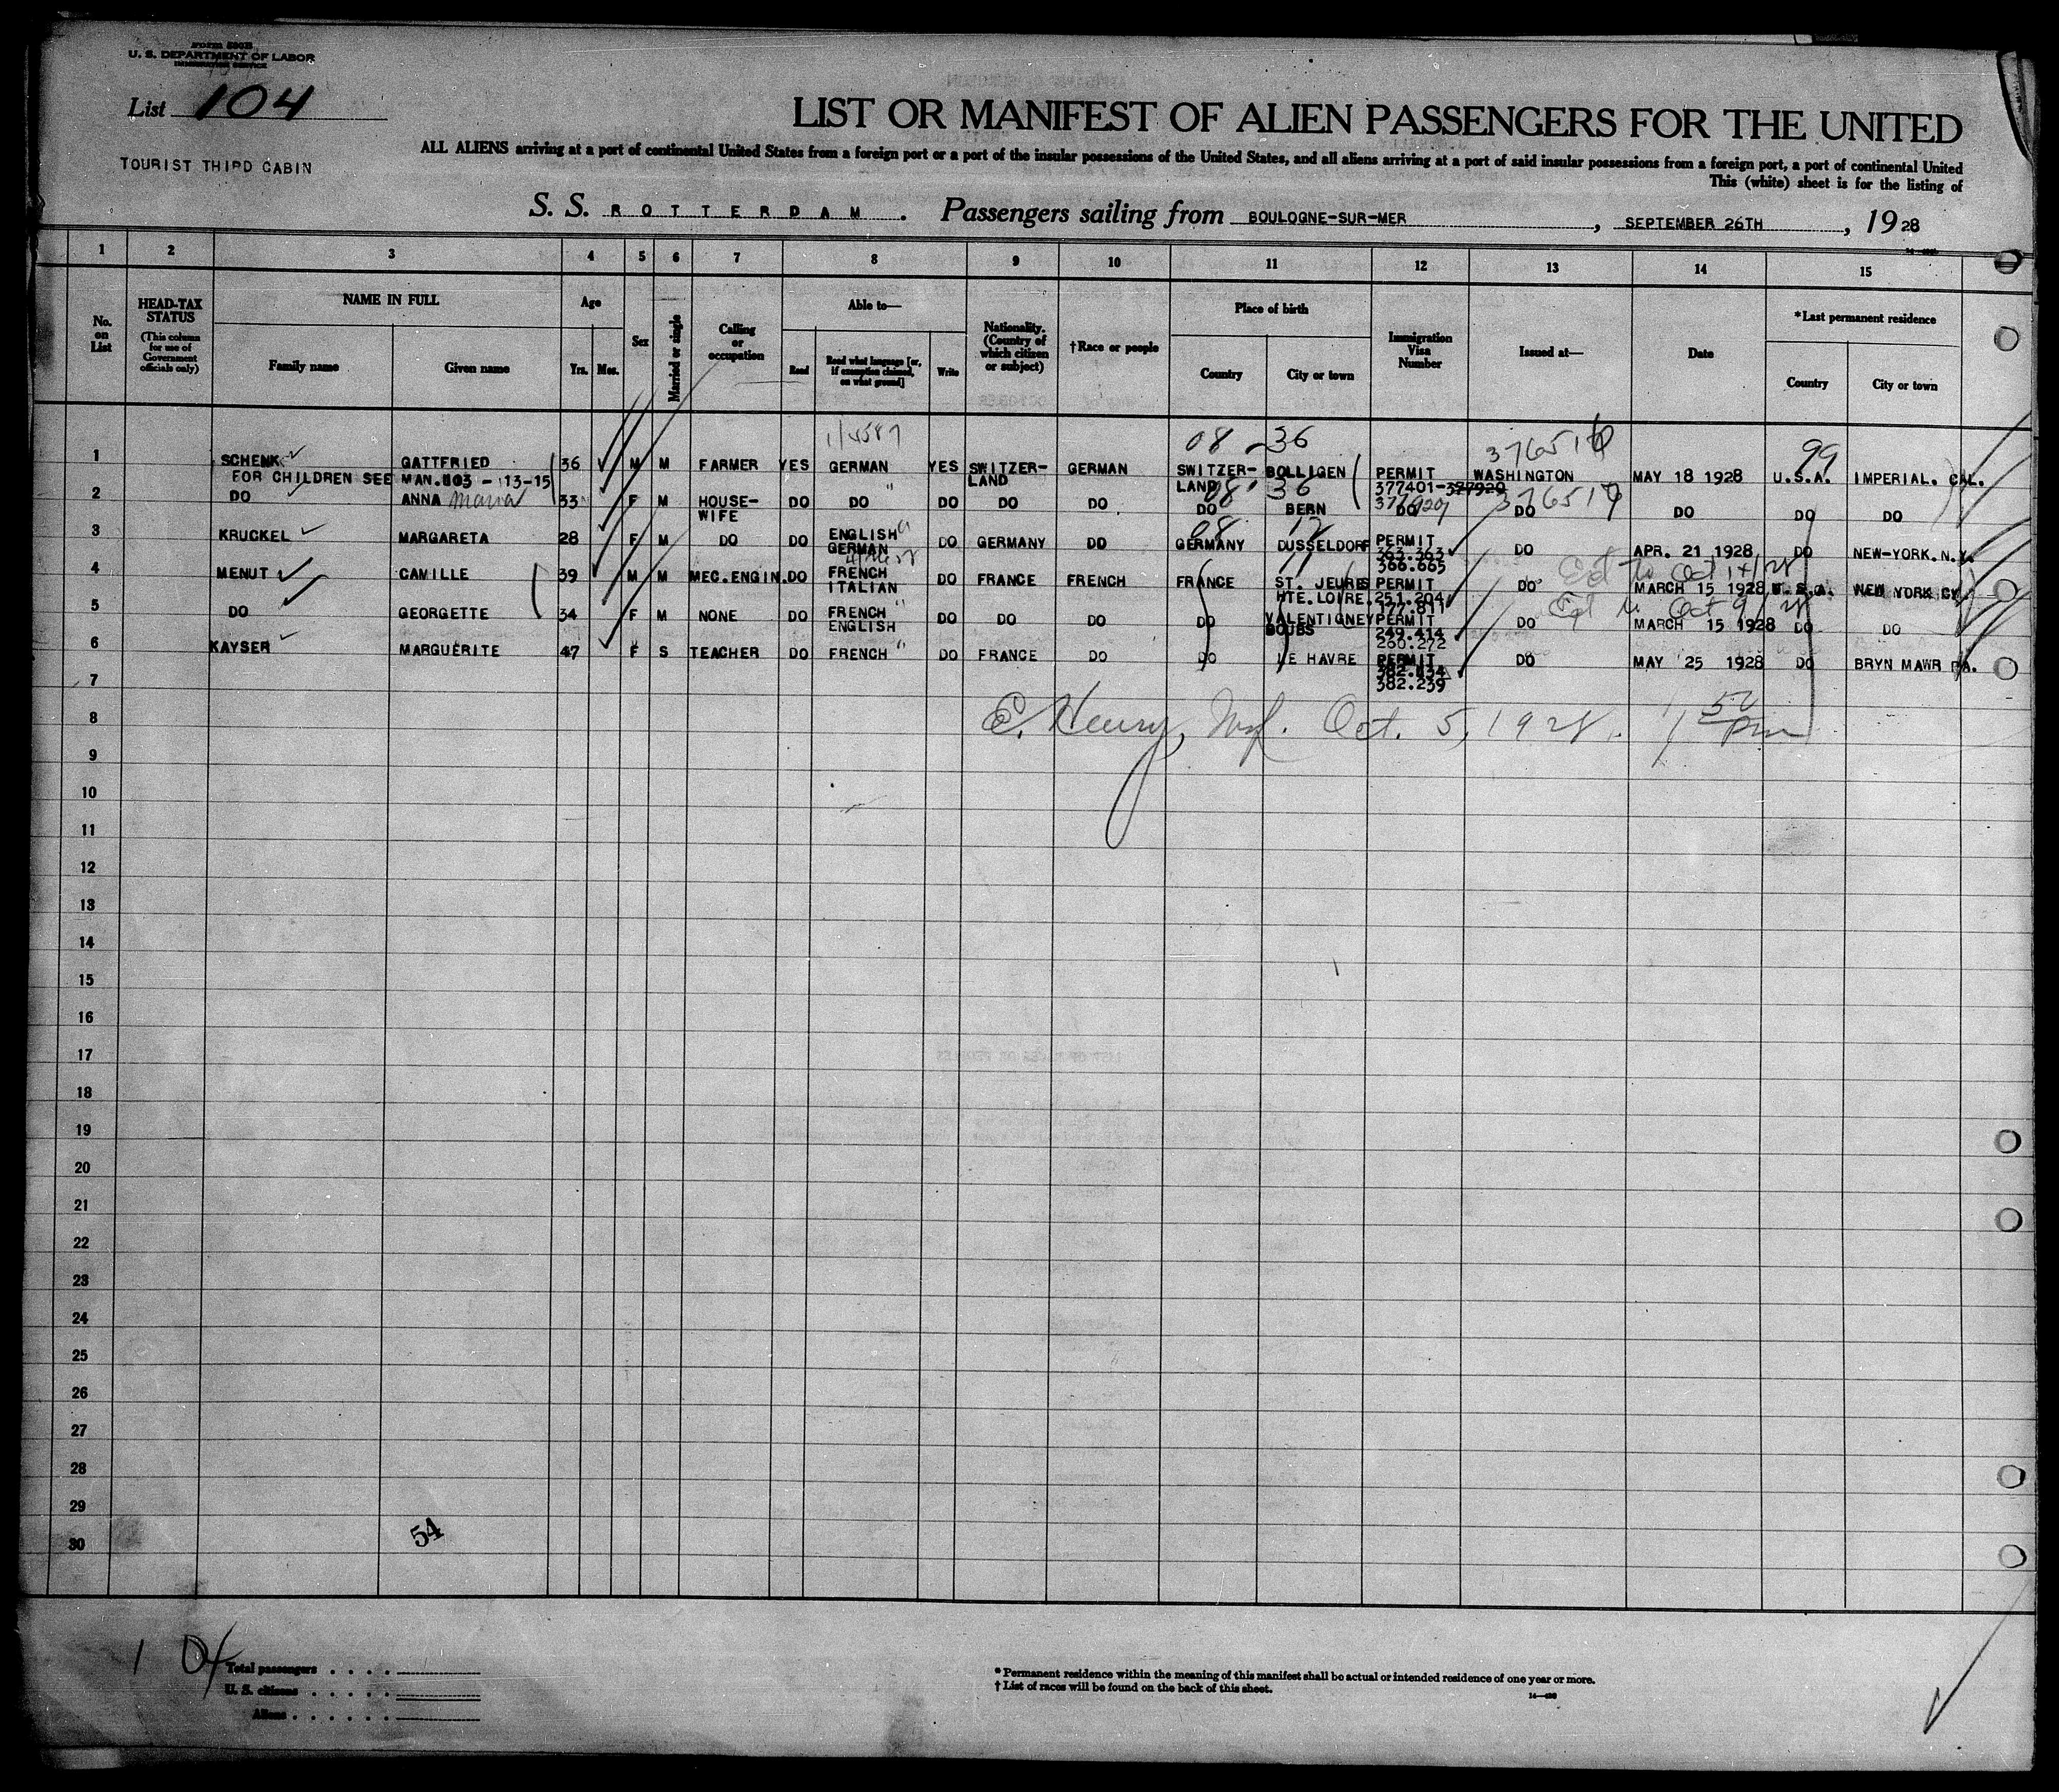 Form 500B
U. S. DEPARTMENT OF LABOR
IMMIGRATION SERVICE
List 104
LIST OR MANIFEST OF ALIEN PASSENGERS FOR THE UNITED
ALL ALIENS arriving at a port of continental United States from a foreign port or a port of the insular possessions of the United States, and all aliens arriving at a port of said insular possessions from a foreign port, a port of continental United
TOURIST THIRD CABIN
This (white) sheet is for the listing of
S. S. ROTTERDAM. Passengers sailing from BOULOGNE-SUR-MER, SEPTEMBER 26TH, 1928
1 2 3 4 5 6 7 8 9 10 11 12 13 14 15
No. on List
HEAD-TAX STATUS
(This column for use of Government officials only)
NAME IN FULL
Family name Given name
Age
Yrs. Mos.
Sex
Married or single
Calling or occupation
Able to—
Read Read what language [or, if exemption claimed, on what ground] Write
Nationality. (Country of which citizen or subject)
†Race or people
Place of birth
Country City or town
Immigration Visa Number
Issued at—
Date
*Last permanent residence
Country City or town
08 - 36 99
1 SCHENK GATTFRIED 36 M M FARMER YES GERMAN YES SWITZER-LAND GERMAN SWITZER-LAND BOLLIGEN PERMIT 377401-377920 WASHINGTON MAY 18 1928 U.S.A. IMPERIAL. CAL.
FOR CHILDREN SEE MAN.103 - 13-15
08 36
2 DO ANNA Maria 33 F M HOUSE-WIFE DO DO " DO DO DO DO BERN DO DO DO DO DO
08 12
3 KRUCKEL MARGARETA 28 F M DO DO ENGLISH GERMAN DO GERMANY DO GERMANY DUSSELDORF PERMIT 363.363 366.665 DO APR. 21 1928 DO NEW-YORK. N.Y.
4 MENUT CAMILLE 39 M M MEC.ENGIN. DO FRENCH ITALIAN DO FRANCE FRENCH FRANCE ST. JEURES HTE.LOIRE PERMIT 251.204 177.811 DO MARCH 15 1928 U.S.A. NEW YORK CY.
5 DO GEORGETTE 34 F M NONE DO FRENCH ENGLISH DO DO DO DO VALENTIGNEY DOUBS PERMIT 249.414 260.272 DO MARCH 15 1928 DO DO
6 KAYSER MARGUERITE 47 F S TEACHER DO FRENCH " DO FRANCE DO DO LE HAVRE PERMIT 382.239 DO MAY 25 1928 DO BRYN MAWR PA.
7
8 E. Henry, Oct. 5, 1928. 1 50 Pm
9
10
11
12
13
14
15
16
17
18
19
20
21
22
23
24
25
26
27
28
29
30
54
104
Total passengers . . . .
U. S. citizens . . . . .
Aliens . . . . . .
* Permanent residence within the meaning of this manifest shall be actual or intended residence of one year or more.
† List of races will be found on the back of this sheet.